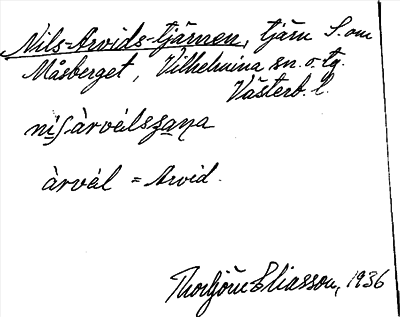 Nils-Arvids-tjärnen, tjärn S. om
Måsberget, Vilhelmina sn. o. tg.
Västerb. l.
àrvél = Arvid.
Thorbjörn Eliasson, 1936